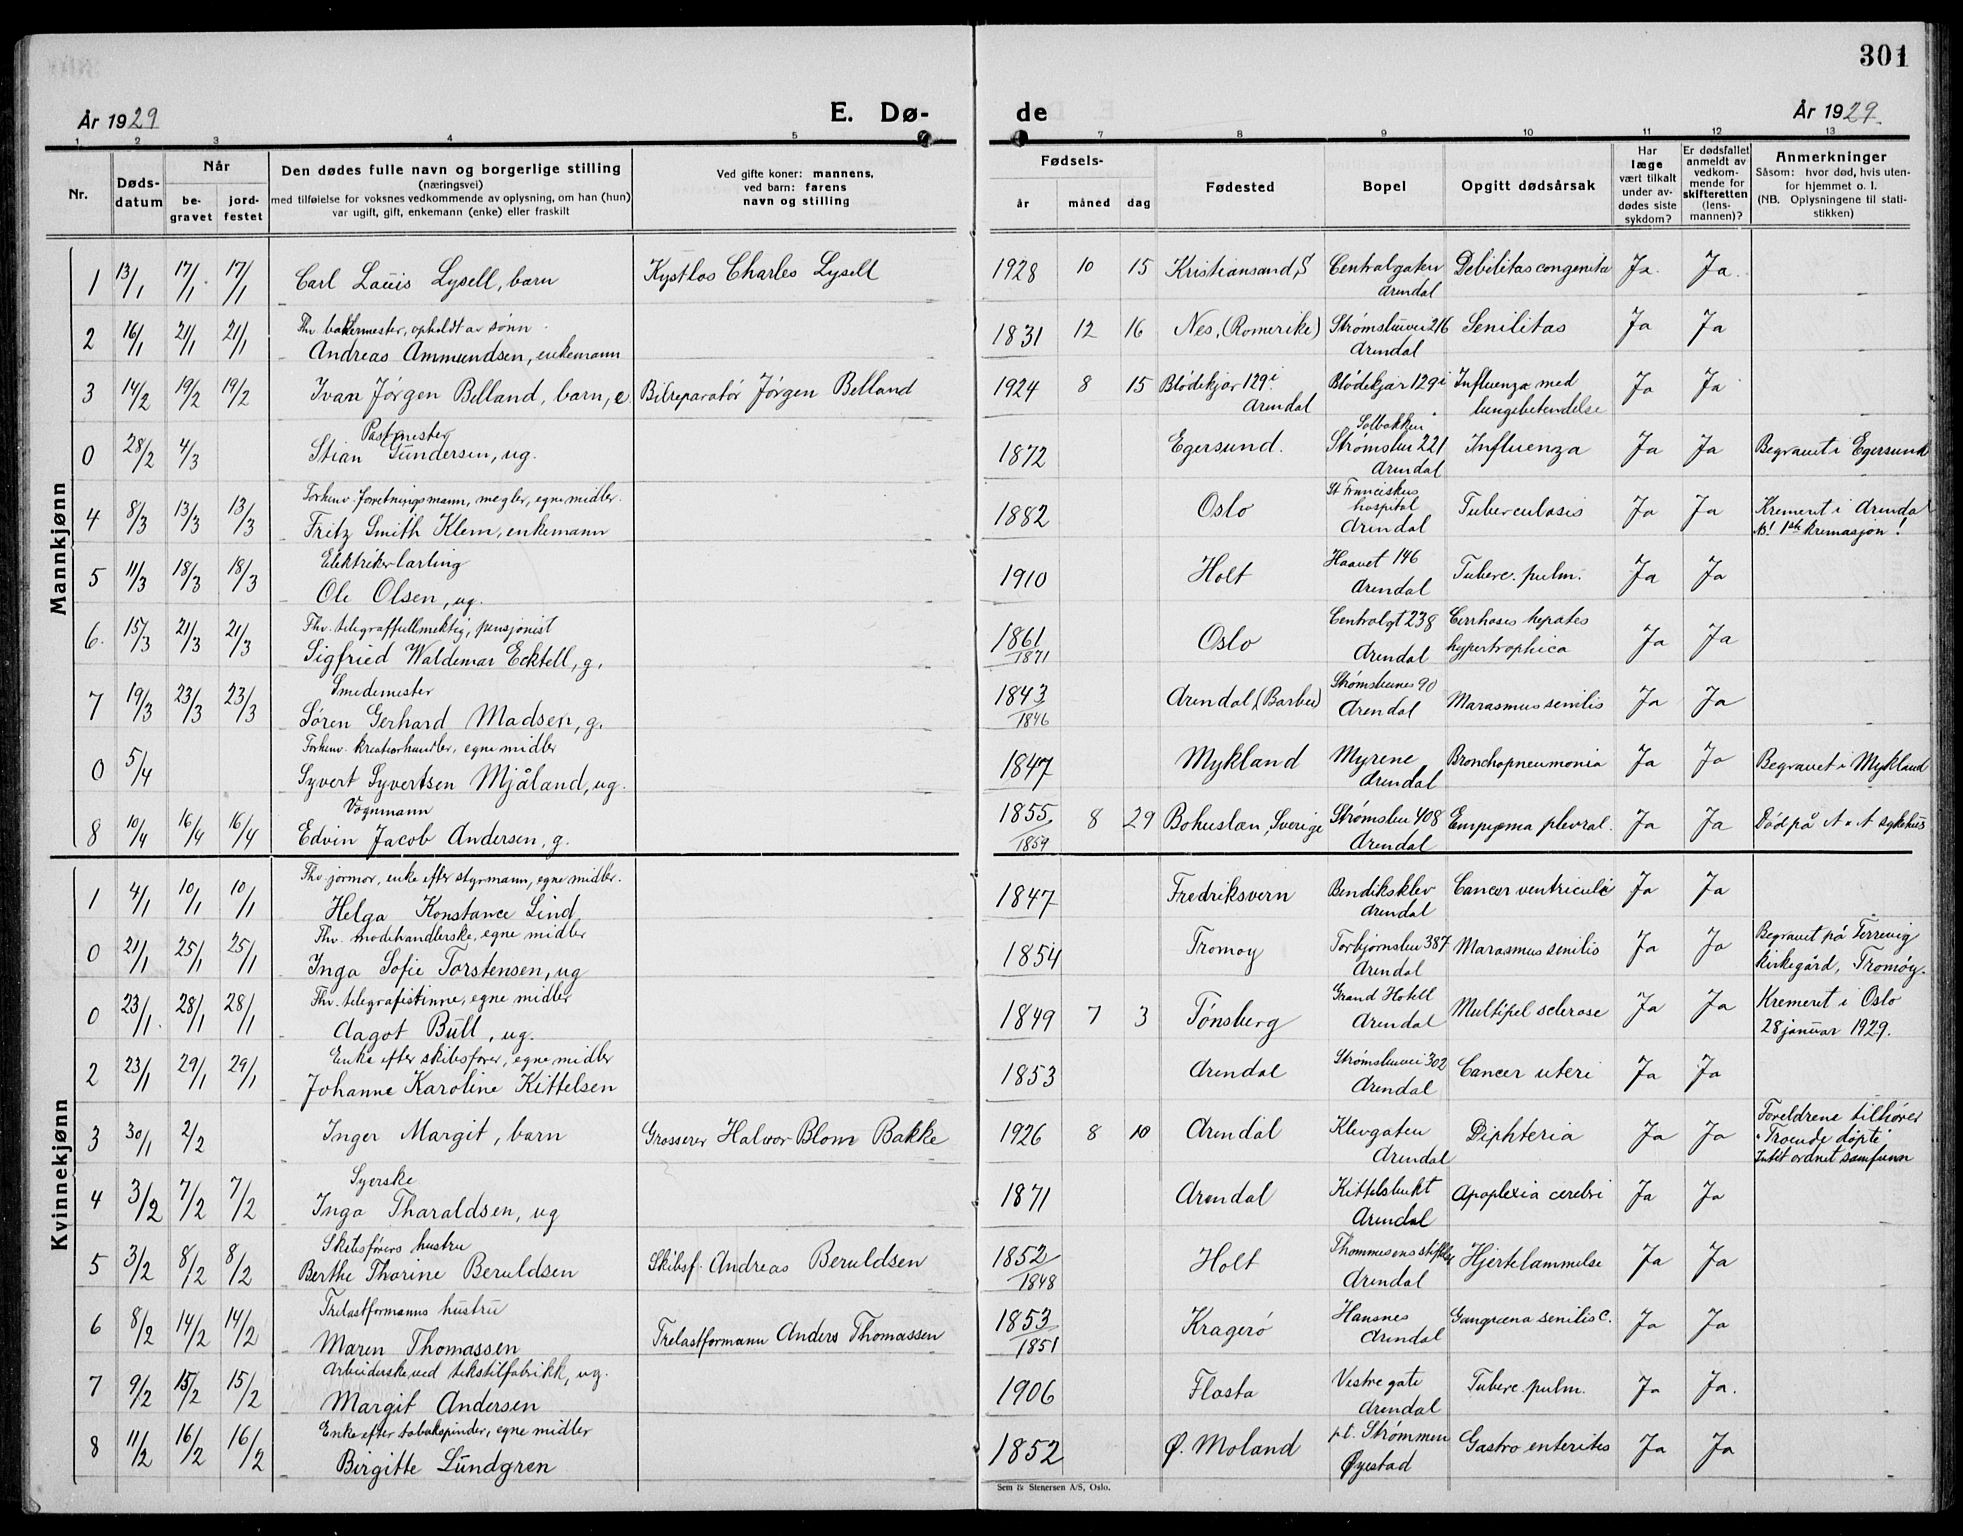 301
År 1929
E. Dø-
de
År 1929.
1 2 3 4 5 7 8 9 10 11 12 13
Nr.
Døds-
datum
Når
be-
gravet
jord-
festet
Den dødes fulle navn og borgerlige stilling
(næringsvei)
med tilføielse for voksnes vedkommende av oplysning, om han (hun)
var ugift, gift, enkemann (enke) eller fraskilt
Ved gifte koner: mannens,
ved barn: farens
navn og stilling
Fødsels-
år måned dag
Fødested
Bopel
Opgitt dødsårsak
Har
læge
vært tilkalt
under av-
dødes siste
sykdom?
Er dødsfallet
anmeldt av
vedkom-
mende for
skifteretten
(lens-
mannen)?
Anmerkninger
Såsom: hvor død, hvis uten-
for hjemmet o. l.
(NB. Oplysningene til stati-
stikken)
Mannkjønn
1 13/1 17/1 17/1 Carl Louis Lysell, barn Kystlos Charles Lysell 1928 10 15 Kristiansand S Centralgaten Arendal Debilitas congenita Ja Ja
2 16/1 21/1 21/1 Fhv. bakermester, opholdt av sønn
Andreas Ammundsen, enkemann 1831 12 16 Nes, (Romerike) Strømsbuvei 216 Arendal Senilitas Ja Ja
3 14/2 19/2 19/2 Ivan Jørgen Belland, barn, e Bilreparatør Jørgen Belland 1924 8 15 Blødekjær 129i Arendal Blødekjær 129i Influenza med lungebetendelse Ja Ja
0 28/2 4/3 Postmester
Stian Gundersen, ug. 1872 Egersund. Solbakken Strømsbu 221 Arendal Influenza Ja Ja Begravet i Egersund
4 8/3 13/3 13/3 Forhenv. forretningsmann, megler, egne midler.
Fritz Smith Klem, enkemann 1882 Oslo St Franciskus hospital Arendal Tuberculosis Ja Ja Kremert i Arendal
NB! 1ste kremasjon!
5 11/3 18/3 18/3 Elektrikerlærling
Ole Olsen, ug. 1910 Holt Haavet 146 Arendal Tuberc. pulm. Ja Ja
6. 15/3 21/3 21/3 Fhv. telegraffullmektig, pensjonist
Sigfried Waldemar Ecktell, g. 1861/1871 Oslo Centralgt 238 Arendal Cirrhosis hepates hypertrophica Ja Ja
7 19/3 23/3 23/3 Smedemester
Søren Gerhard Madsen, g. 1843/1846 Arendal (Barbu) Strømsbunes 90 Arendal Marasmus senilis Ja Ja
0 5/4 Forhenv. kreaturhandler, egne midler
Syvert Syvertsen Mjåland, ug. 1847 Mykland Myrene Arendal Bronchopneumonia Ja Ja Begravet i Mykland
8 10/4 16/4 16/4 Vognmann
Edvin Jacob Andersen, g. 1855/1859 8 29 Bohuslæn, Sverige Strømsbu 408 Arendal Empyema plevral. Ja Ja Død på A. A sykehus
Kvinnekjønn
1 4/1 10/1 10/1 Fhv. jormor, enke efter styrmann, egne midler.
Helga Konstance Lind 1847 Fredriksvern Bendiksklev Arendal Cancer ventriculi Ja Ja
0 21/1 25/1 25/1 Fhv. modehandlerske, egne midler
Inga Sofie Torstensen, ug 1854 Tromøy Torbjørnsbu 387 Arendal Marasmus senilis Ja Ja Begravet på Færvig
kirkegård, Tromøy.
0 23/1 28/1 28/1 Fhv. telegrafistinne, egne midler
Aagot Bull, ug. 1849 7 3 Tønsberg Grand Hotell Arendal Multipel sclerose Ja Ja Kremert i Oslo
28 januar 1929.
2 23/1 29/1 29/1 Enke efter skibsfører, egne midler
Johanne Karoline Kittelsen 1853 Arendal Strømsbuvei 302 Arendal Cancer uteri Ja Ja
3 30/1 2/2 Inger Margit, barn Grosserer Halvor Blom Bakke 1926 8 10 Arendal Klevgaten Arendal Diphteria Ja Ja Foreldrene tilhører
"Troende døpte"
Intet ordnet samfunn
4 3/2 7/2 7/2 Syerske
Inga Tharaldsen, ug 1871 Arendal Kittelsbukt Arendal Apoplexia cerebri Ja Ja
5 3/2 8/2 8/2 Skibsførers hustru
Berthe Thorine Beruldsen Skibsf. Andreas Beruldsen 1852/1848 Holt Thommesens stiftelse Arendal Hjertelammelse Ja Ja
6 8/2 14/2 14/2 Trelastformanns hustru
Maren Thomassen Trelastformann Anders Thomassen 1853/1851 Kragerø Hansnes Arendal Gangræna senilis c. Ja Ja
7 9/2 15/2 15/2 Arbeiderske ved tekstilfabrikk, ug.
Margit Andersen 1906 Flosta Vestre gate Arendal Tuberc. pulm. Ja Ja.
8 11/2 16/2 16/2 Enke efter tobakspinder, egne midler
Birgitte Lundgren 1852 Ø. Moland pt. Strømmen Øyestad Gastro enterites Ja Ja
Sem & Stenersen A/S, Oslo.